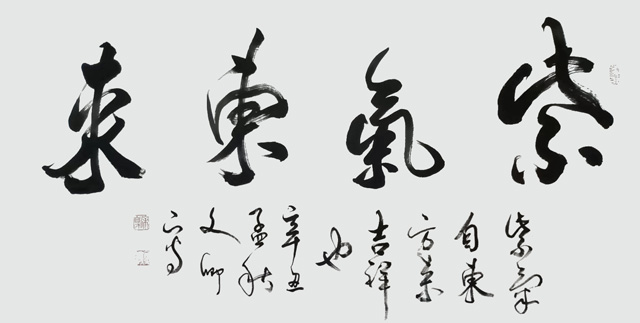 紫氣東来
紫氣
自東
方来
吉祥
也
辛丑
孟秋
文卿